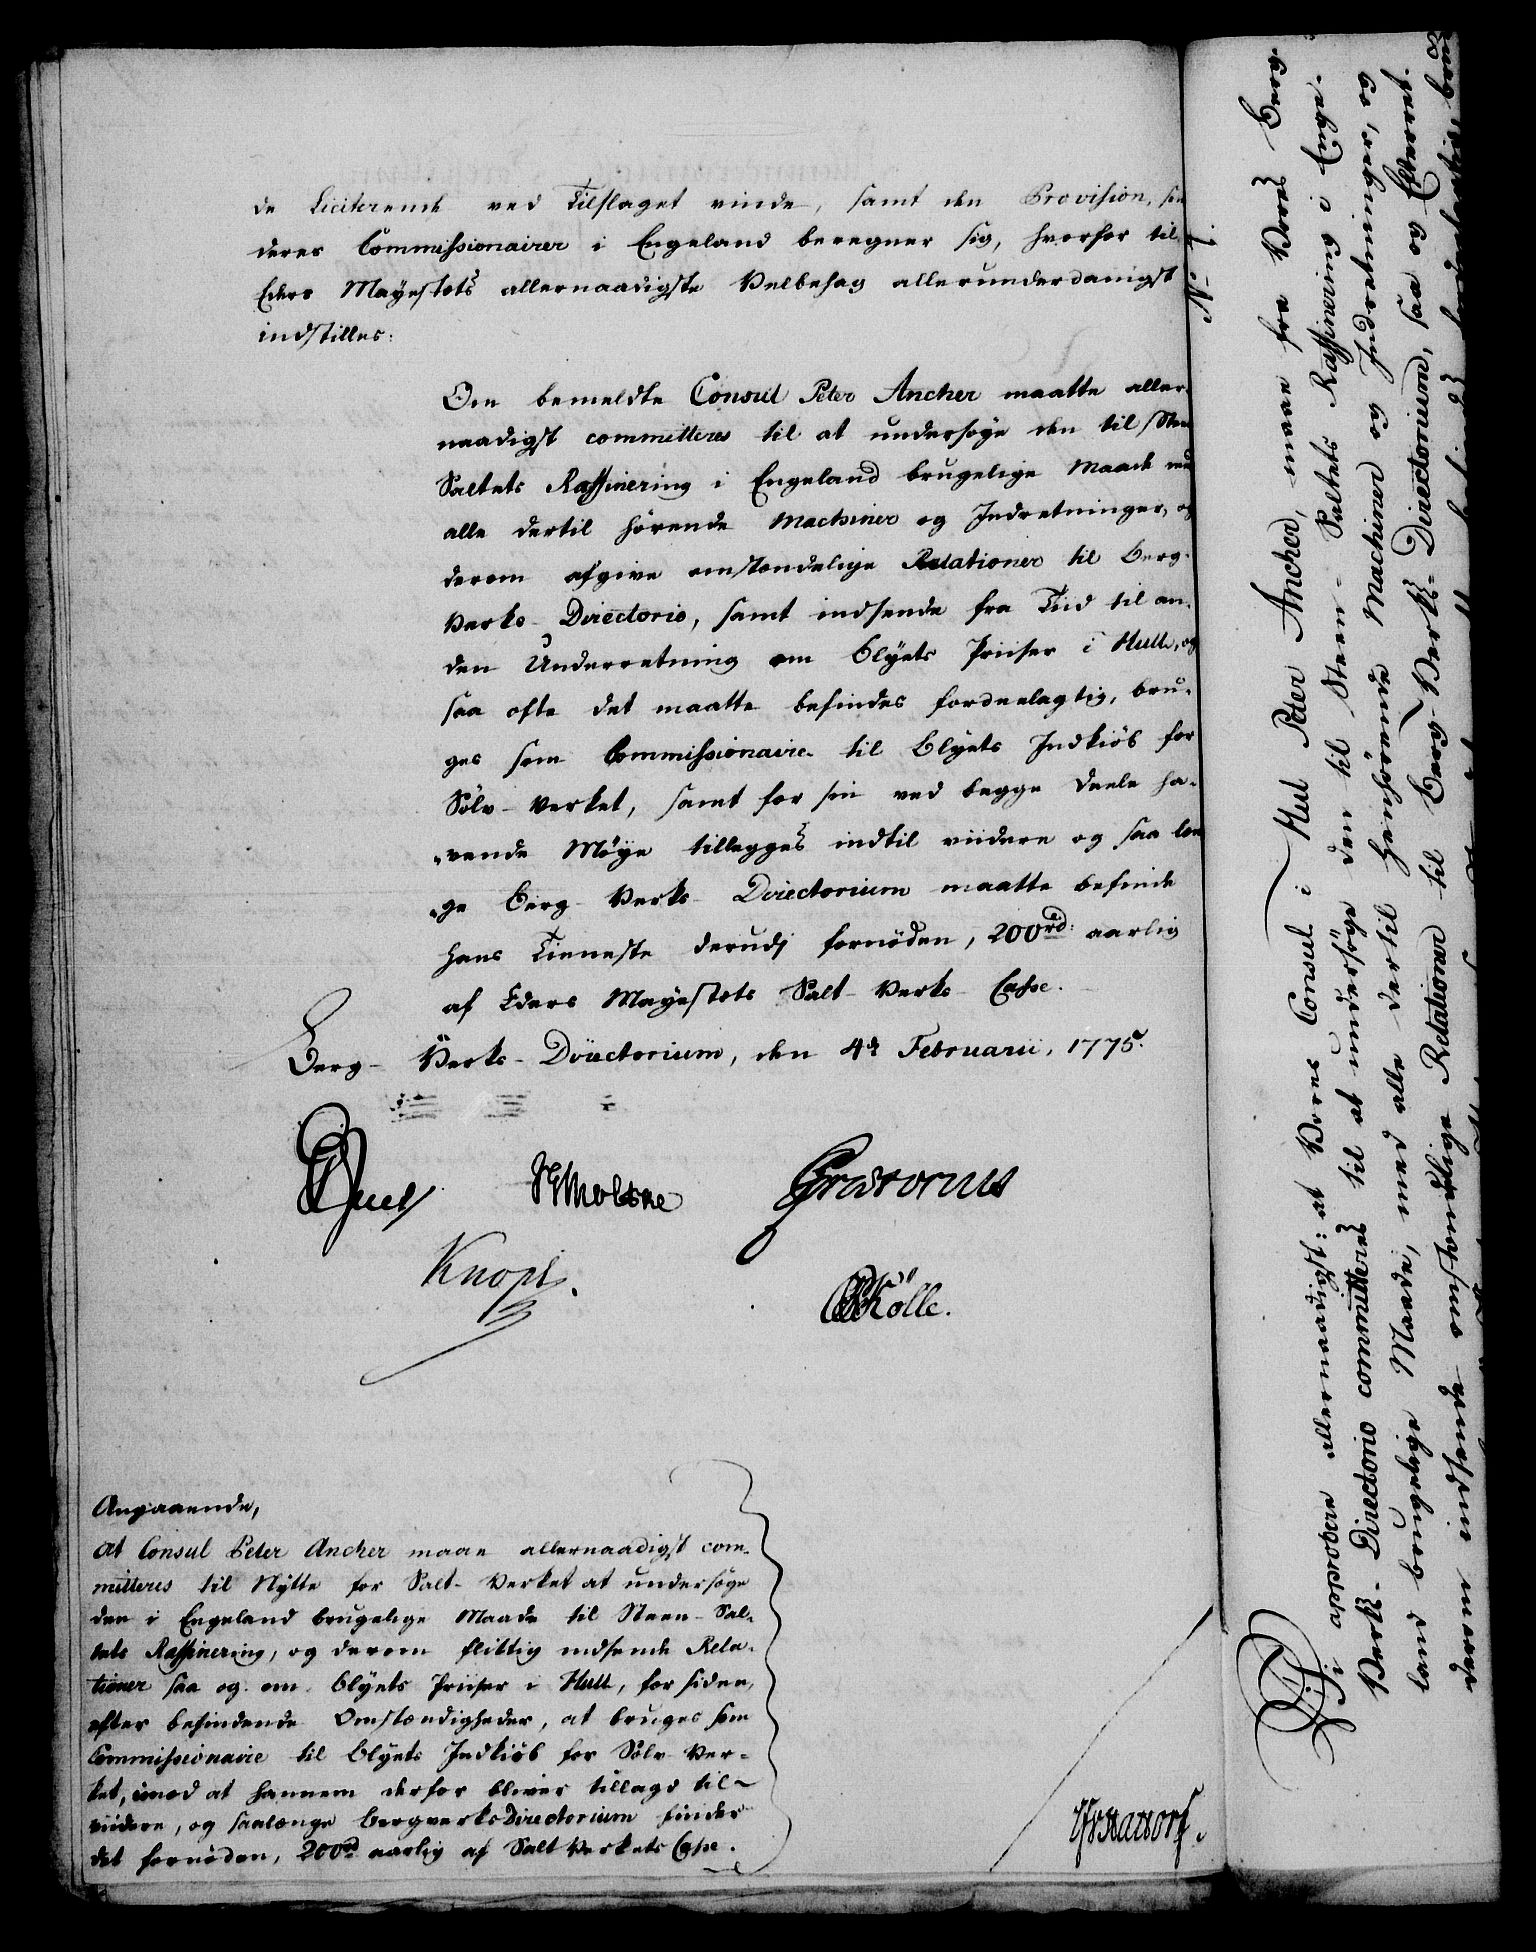 de Liciterende ved Tilslaget vinde, samt den Provision, sin
deres Commissionairer i Engeland beregner sig, hvorfor til
Eders Mayestæts allernaadigste Velbehag allerunderdanigst
indstilles:
Om bemeldte Consul Peter Ancher maatte aller-
naadigst committeres til at undersøge den til Steen
Saltets Raffinering i Engeland brugelige Maade med
alle dertil hörende Machiner og Indretninger, og
derom afgive omstændelige Relationer til Berg-
Verks-Directorio, samt indsende fra Tiid til an-
den Underretning om Blyets Priiser i Hull, og
saa ofte det maatte befindes fordeelagtig, bru-
ges som Commissionaire til Blyets Indkiöb for
Sölv-Verket, samt for sin ved begge Deele ha-
vende Möye tillegges indtil viidere og saa len
ge Berg-Verks-Directorium maatte befinde
hans Tieneste derudj fornöden, 200rd: aarlig
af Eders Mayestæts Salt-Verks-Casse.
Berg-Verks-Directorium, den 4de Februarii, 1775.
Juel
Moltke
Prætorius
Knoph.
Kölle.
Angaaende,
at Consul Peter Ancher maae allernaadigst com-
mitteres til Nytte for Salt-Verket at undersöge
den i Engeland brugelige Maade til Steen-Sal-
tets Raffinering, og derom flittig indsende Rela-
tioner saa og om Blyets Priiser i Hull, for siden,
efter befindende Omstændigheder, at bruges som
Commissionaire til Blyets Indkiöb for Sölv-Ver-
ket, imod at hannem derfor bliver tillagd til-
viidere, og saalænge BergverksDirectorium finder
det fornöden, 200rd aarlig af Salt Verkets Casse.
No 1.
Vi approbere allernaadigst: at Vores Consul i Hul Peter Ancher, maae fra Vores Berg-
Verks-Directorio committeres til at undersöge den til Steen-Saltets Raffinering i Enge-
land brugelige Maade, med alle dertil henhörende Machiner og Indretninger, og
derom indsende omstændelige Relationer til Berg-Verks-Directorium, saa og Efterret.